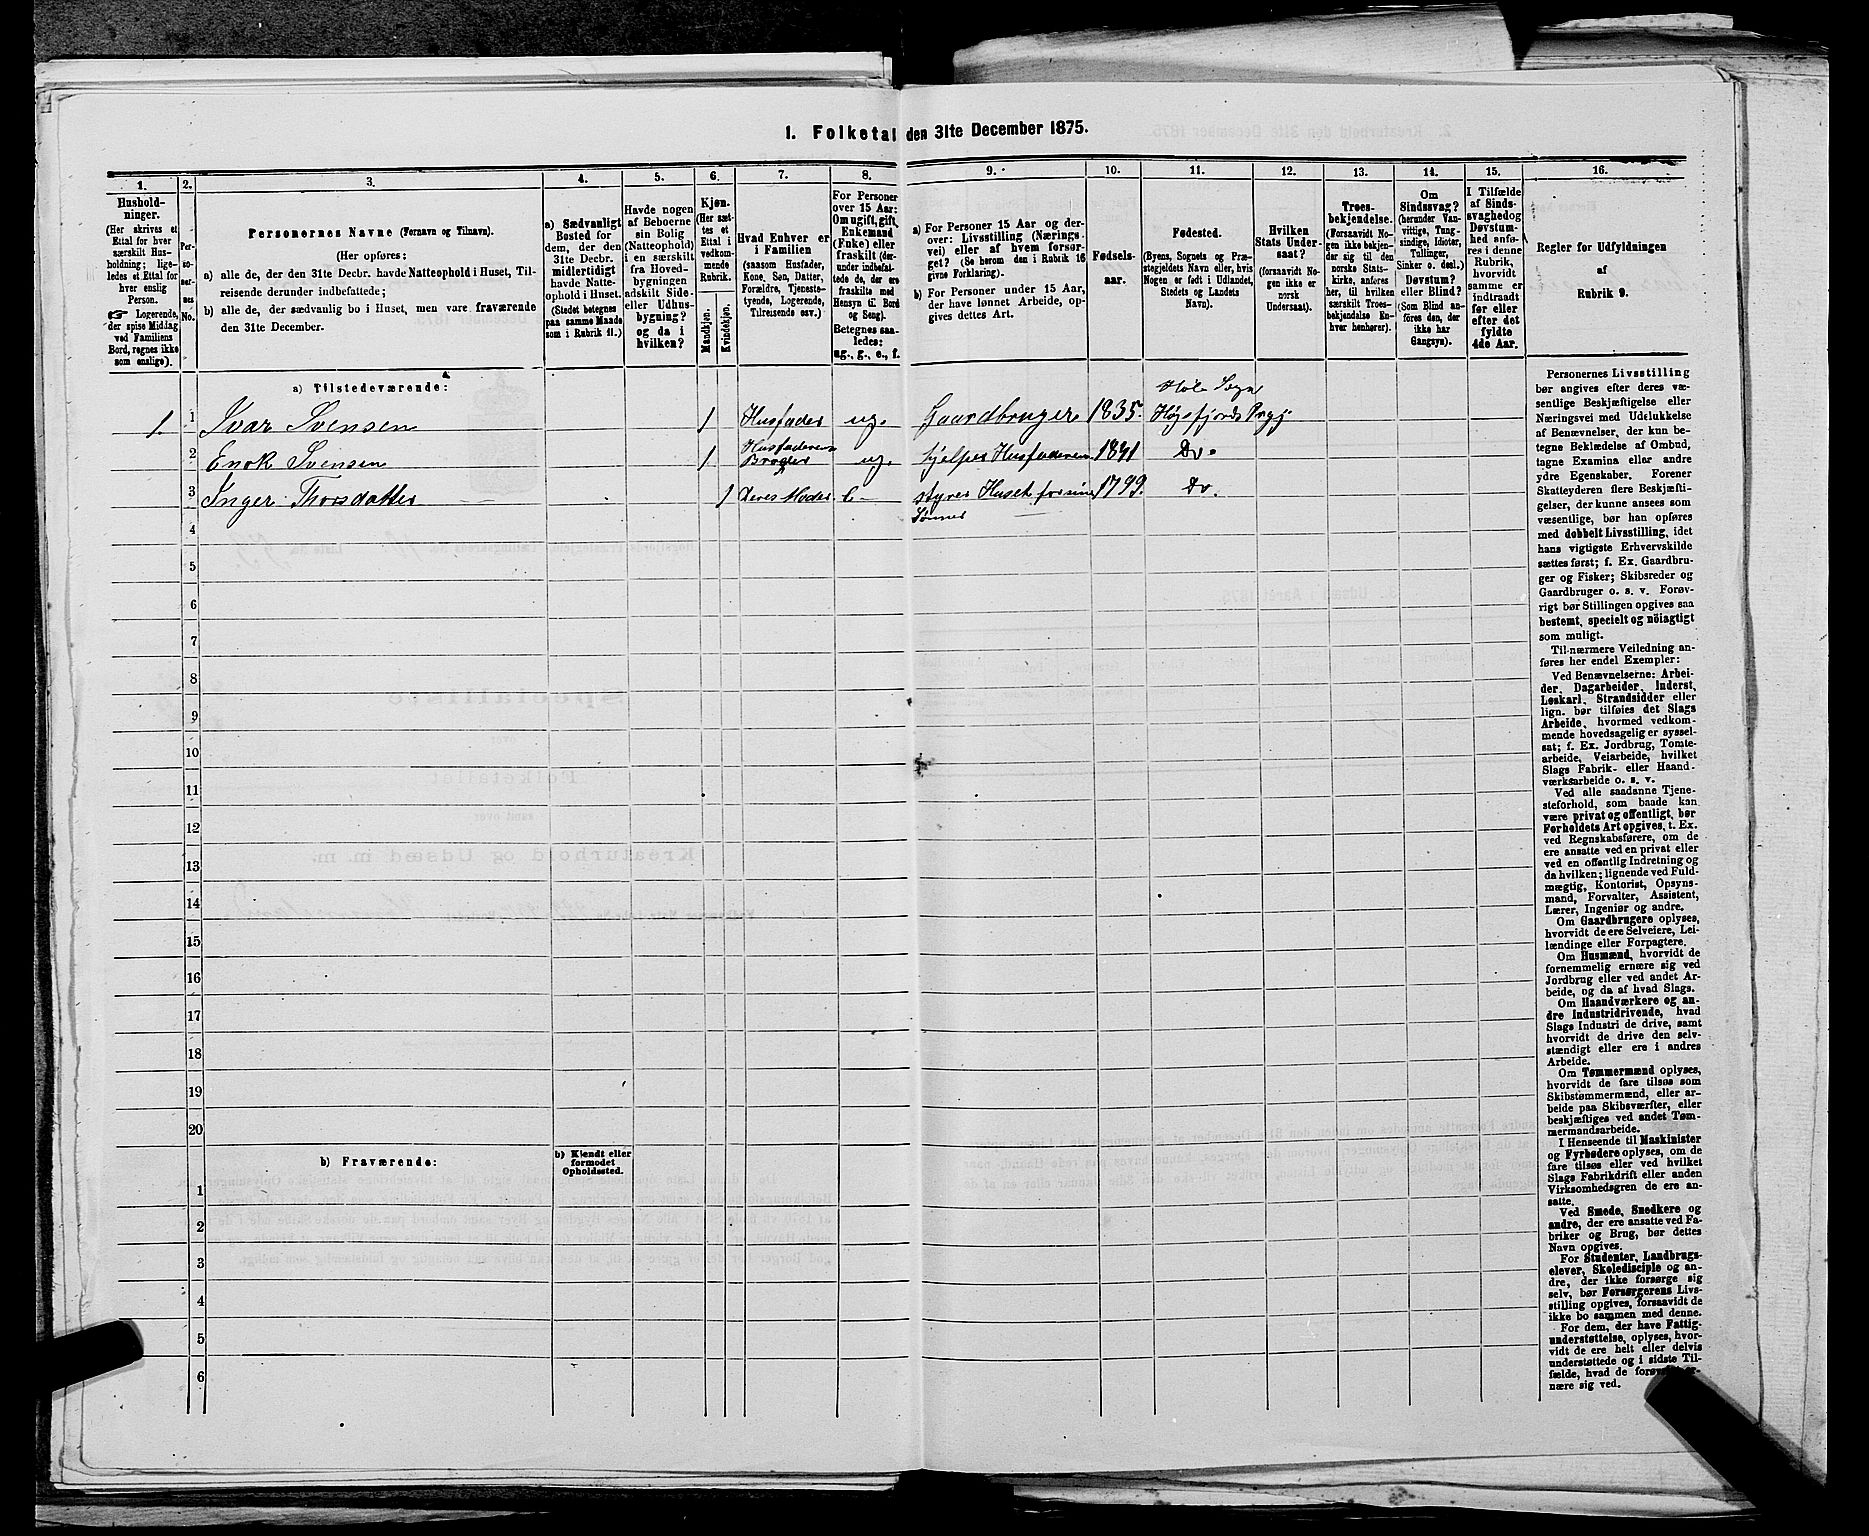 1. Folketal den 31te December 1875.
1.
2.
3.
4.
5.
6.
7.
8.
9.
10.
11.
12.
13.
14.
15.
16.
Hushold-
ninger.
(Her skrives et
Ettal for hver
særskilt Hus-
holdning; lige-
ledes et Ettal for
hver enslig
Person.
☞ Logerende,
der spise Middag
ved Familiens
Bord, regnes ikke
som enslige).
Per-
so-
ner-
nes
No.
Personernes Navne (Fornavn og Tilnavn).
(Her opføres:
a) alle de, der den 31te Decbr. havde Natteophold i Huset, Til-
reisende derunder indbefattede;
b) alle de, der sædvanlig bo i Huset, men vare fraværende
den 31te December.
a) Sædvanligt
Bosted for
dem, der den
31te Decbr.
midlertidigt
havde Natte-
ophold i Huset.
(Stedet betegnes
paa samme Maade
som i Rubrik 11.)
Havde nogen
af Beboerne
sin Bolig
(Natteophold)
i en særskilt
fra Hoved-
bygningen
adskilt Side-
eller Udhus-
bygning?
og da i
hvilken?
Kjøn.
(Her sæt-
tes et
Ettal i
vedkom-
mende
Rubrik.
Mandkjøn.
Kvindekjøn.
Hvad Enhver er
i Familien
(saasom Husfader,
Kone, Søn, Datter,
Forældre, Tjeneste-
tyende, Logerende,
Tilreisende osv.)
For Personer
over 15 Aar:
Om ugift, gift,
Enkemand
(Enke) eller
fraskilt (der-
under indbefat-
tede de, der ere
fraskilte med
Hensyn til Bord
og Seng).
Betegnes saa-
ledes:
ug., g., e., f.
a) For Personer 15 Aar og der-
over: Livsstilling (Nærings-
vei) eller af hvem forsør-
get? (Se herom den i Rubrik 16
givne Forklaring).
b) For Personer under 15 Aar,
der have lønnet Arbeide, op-
gives dettes Art.
Fødsels-
aar.
Fødested.
(Byens, Sognets og Præ-
stegjeldets Navn eller, hvis
Nogen er født i Udlandet,
Stedets og Landets
Navn).
Hvilken
Stats Under-
saat?
(forsaavidt No-
gen ikke er
norsk
Undersaat).
Troes-
bekjendelse.
(Forsaavidt No-
gen ikke bekjen-
der sig til den
norske Stats-
kirke, anføres
her, til hvilken
særskilt Troes-
bekjendelse En-
hver henhører).
Om
Sindssvag?
(herunder Van-
vittige, Tung-
sindige, Idioter,
Tullinger,
Sinker o. desl.)
Døvstum?
eller Blind?
(Som Blind an-
føres den, der
ikke har
Gangsyn).
I Tilfælde
af Sinds-
svaghed og
Døvstum-
hed anfø-
res i denne
Rubrik,
hvorvidt
samme er
indtraadt
før eller
efter det
fyldte
4de Aar.
Regler for Udfyldningen
af
Rubrik 9.
a) Tilstedeværende:
1. 1 Ivar Svensen 1 Husfader ug. Gaardbruger 1835. Hole Sogn Høgsfjords Prgj.
2 Enok Svensen 1 Husfaderens Broder ug. hjelper Husfaderen 1841 Do.
3 Inger Thorsdatter 1 Deres Moder E styrer Huset for sine Sønner 1799. Do.
4
5
6
7
8
9
10
11
12
13
14
15
16
17
18
19
20
b) Fraværende:
b) Kjendt eller
formodet
Opholdssted.
1
2
3
4
5
6
Personernes Livsstilling
bør angives efter deres væ-
sentlige Beskjæftigelse eller
Næringsvei med Udelukkelse
af Benævnelser, der kun be-
tegne Beklædelse af Ombud,
tagne Examina eller andre
ydre Egenskaber. Forener
Skatteyderen flere Beskjæfti-
gelser, der kunne ansees som
væsentlige, bør han opføres
med dobbelt Livsstilling, idet
hans vigtigste Erhvervskilde
sættes først; f. Ex. Gaardbru-
ger og Fisker; Skibsreder og
Gaardbruger o. s. v. Forøv-
rigt bør Stillingen opgives saa
bestemt, specielt og nöiagtigt
som muligt.
Til nærmere Veiledning an-
føres her endel Exempler:
Ved Benævnelserne: Arbei-
der, Dagarbeider, Inderst,
Løskarl, Strandsidder eller
lign. bør tilføies det Slags
Arbeide, hvormed vedkom-
mende hovedsagelig er syssel-
sat; f. Ex. Jordbrug, Tomte-
arbeide, Veiarbeide, hvilket
Slags Fabrik- eller Haand-
værksarbeide o. s. v.
Ved alle saadanne Tjene-
steforhold, som baade kan
være privat og offentligt, bør
Forholdets Art opgives, t. Ex.
ved Regnskabsførere, om de
ere ansatte ved en privat eller
ved en offentlig Indretning og
da hvilken; lignende ved Fuld-
mægtig, Kontorist, Opsyns-
mand, Forvalter, Assistent,
Lærer, Ingeniør og andre.
Om Gaardbrugere oplyses,
hvorvidt de ere Selveiere, Lei-
lændinge eller Forpagtere.
Om Husmænd, hvorvidt de
fornemmelig ernære sig ved
Jordbrug eller ved andet Ar-
beide, og da af hvad Slags.
Om Haandværkere og an-
dre Industridrivende, hvad
Slags Industri de drive, samt
hvorvidt de drive den selv-
stændigt eller ere i andres
Arbeide.
Om Tømmermænd oplyses,
hvorvidt de fare tilsøs som
Skibstømmermænd, eller ar-
beide paa Skibsværfter, eller
beskjæftiges ved andet Tøm-
mermandsarbeide.
I Henseende til Maskinister
og Fyrbødere oplyses, om de
fare tilsøs eller ved hvilket
Slags Fabrikdrift eller anden
Virksomhedsgren de ere an-
satte.
Ved Smede, Snedkere og
andre, der ere ansatte ved Fa-
briker og Brug, bør dettes
Navn opgives.
For Studenter, Landbrugs-
elever, Skoledisciple og an-
dre, der ikke forsørge sig
selv, bør Forsørgerens Livs-
stilling opgives, forsaavidt de
ikke bo sammen med denne.
For dem, der have Fattig-
understøttelse, oplyses, hvor-
vidt de ere helt eller delvis
understøttede og i sidste Til-
fælde, hvad de
nære sig ved.